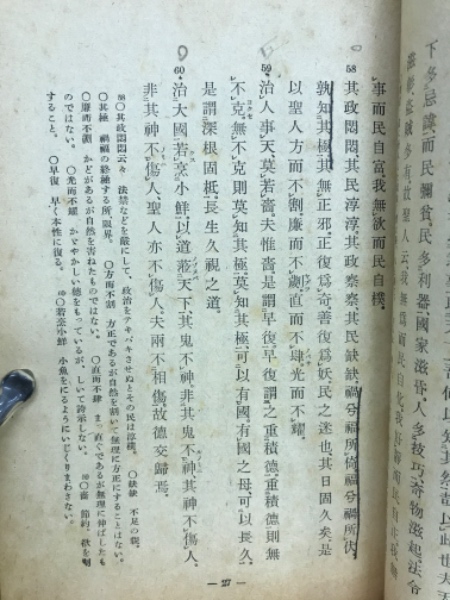 下多忌諱、而民彌貧。民多利器、國家滋昏。人多技巧、奇物滋起。法令
滋彰、盜賊多有。故聖人云、我無爲而民自化、我好靜而民自正、我無
事而民自富、我無欲而民自樸。
58 其政悶悶、其民淳淳。其政察察、其民缺缺。禍兮福所倚、福兮禍所伏。
孰知其極。其無正邪。正復爲奇、善復爲妖。民之迷也、其日固久矣。是
以聖人方而不割、廉而不歲、直而不肆、光而不耀。
59 治人事天、莫若嗇。夫惟嗇、是謂早復。早復謂之重積德。重積德則無
不克。無不克則莫知其極。莫知其極、可以有國。有國之母、可以長久。
是謂深根固柢、長生久視之道。
60 治大國、若烹小鮮。以道蒞天下、其鬼不神。非其鬼不神、其神不傷人。
非其神不傷人、聖人亦不傷人。夫兩不相傷、故德交歸焉。
58 〇其政悶悶云々 法禁などを厳にして、政治をテキパキさせぬとその民は淳樸。 〇缺缺 不足の貌。
〇其極 禍福の終極する所、限界。 〇方而不割 方正であるが自然を割いて無理に方正にすることはない。
〇廉而不劌 かどがあるが自然を害ねたものではない。 〇直而不肆 まっ直ぐであるが無理に伸ばしたも
のではない。 〇光而不耀 かがやかしい德をもっているが、しいて誇示しない。 59 〇嗇 節約、欲を制
すること。 〇早復 早く本性に復る。 60 〇若烹小鮮 小魚をにるようにいじくりまわさない。
— 27 —